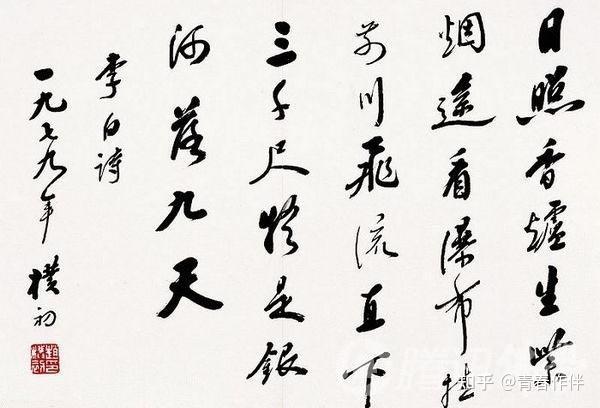 日照香炉生紫
烟遥看瀑布挂
前川飞流直下
三千尺疑是银
河落九天
李白诗
一九七九年 樸初
知乎 @青春作伴